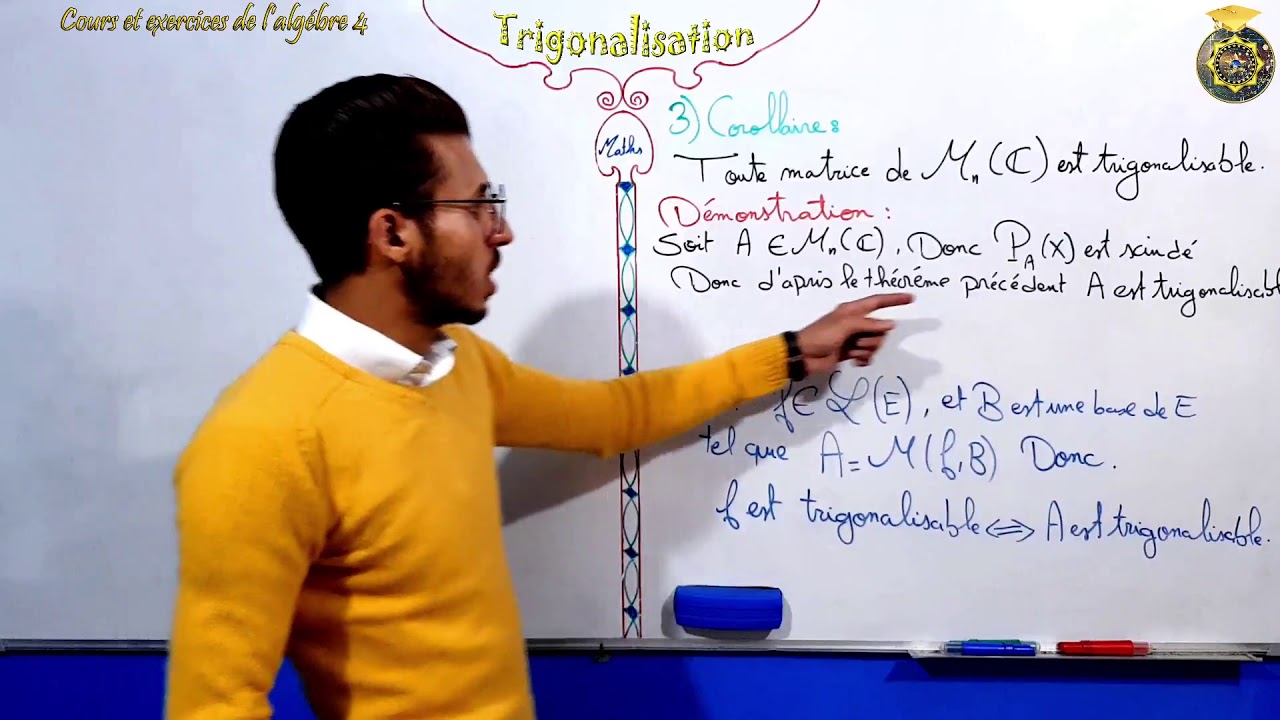 Cours et exercices de l'algébre 4
Trigonalisation
Maths
3) Corollaire:
Toute matrice de Mₙ(ℂ) est trigonalisable.
Démonstration:
Soit A ∈ Mₙ(ℂ). Donc P_A(X) est scindé
Donc d'après le théoréme précédent A est trigonalisabl
f ∈ ℒ(E), et B est une base de E
tel que A = M(f,B) Donc.
f est trigonalisable ⟺ A est trigonalisable.